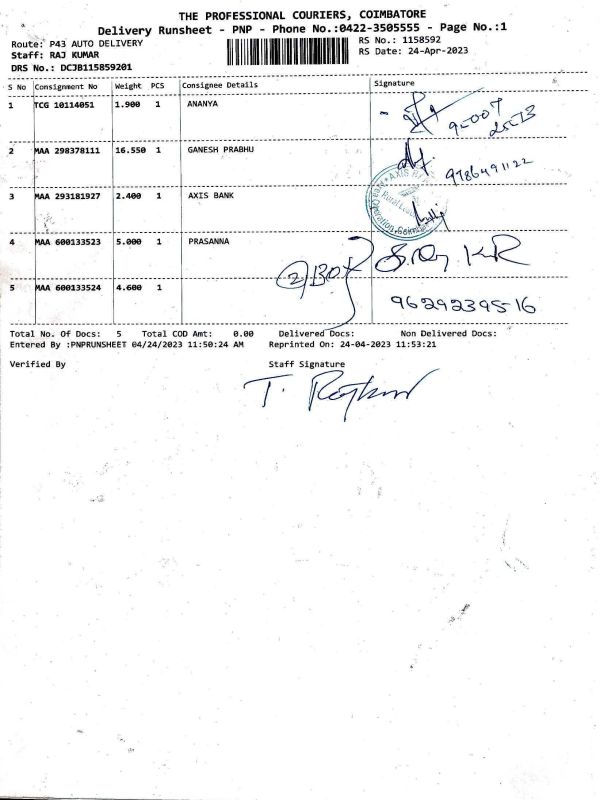 THE PROFESSIONAL COURIERS, COIMBATORE
Delivery Runsheet - PNP - Phone No.:0422-3505555 - Page No.:1
Route: P43 AUTO DELIVERY RS No.: 1158592
Staff: RAJ KUMAR RS Date: 24-Apr-2023
DRS No.: DCJB115859201
S No Consignment No Weight PCS Consignee Details Signature
1 TCG 10114051 1.900 1 ANANYA
2 MAA 298378111 16.550 1 GANESH PRABHU
9786491122
3 MAA 293181927 2.400 1 AXIS BANK
4 MAA 600133523 5.000 1 PRASANNA
2 BOX
5 MAA 600133524 4.600 1
9629239516
Total No. Of Docs: 5 Total COD Amt: 0.00 Delivered Docs: Non Delivered Docs:
Entered By :PNPRUNSHEET 04/24/2023 11:50:24 AM Reprinted On: 24-04-2023 11:53:21
Verified By Staff Signature